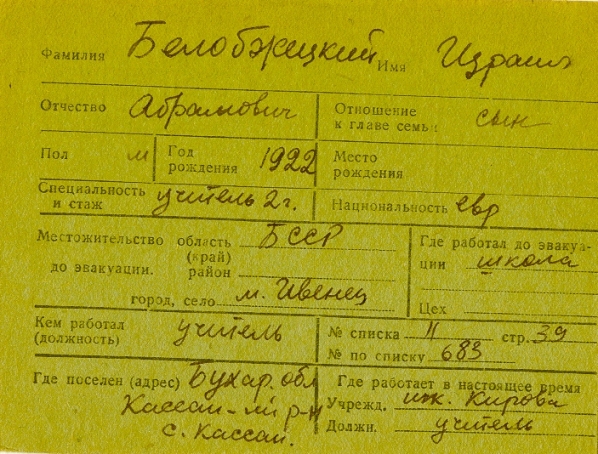 Фамилия Белобжецкий Имя Израиль
Отчество Абрамович Отношение к главе семьи сын
Пол м Год рождения 1922 Место рождения
Специальность и стаж учитель 2 г. Национальность евр
Местожительство до эвакуации. область (край) БССР
район
город, село м. Ивенец
Где работал до эвакуации школа
Цех
Кем работал (должность) учитель
№ списка 11 стр. 39
№ по списку 683
Где поселен (адрес) Бухар. обл
Кассан-ий р-н
с. Кассан.
Где работает в настоящее время
Учрежд. им. Кирова
Должн. учитель